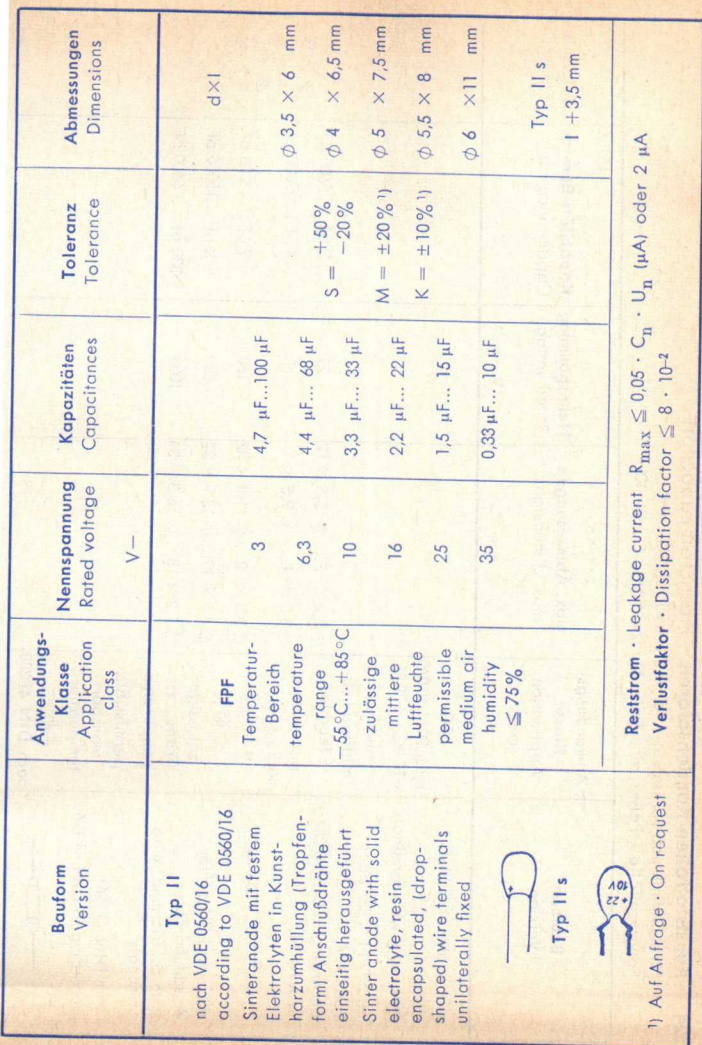 Bauform
Version
Anwendungs-
Klasse
Application
class
Nennspannung
Rated voltage
V—
Kapazitäten
Capacitances
Toleranz
Tolerance
Abmessungen
Dimensions
Typ II
nach VDE 0560/16
according to VDE 0560/16
Sinteranode mit festem
Elektrolyten in Kunst-
harzumhüllung (Tropfen-
form) Anschlußdrähte
einseitig herausgeführt
Sinter anode with solid
electrolyte, resin
encapsulated, (drop-
shaped) wire terminals
unilaterally fixed
+
Typ II s
+ 22
10V
FPF
Temperatur-
Bereich
temperature
range
−55°C...+85°C
zulässige
mittlere
Luftfeuchte
permissible
medium air
humidity
≦ 75%
3
6,3
10
16
25
35
4,7 µF...100 µF
4,4 µF... 68 µF
3,3 µF... 33 µF
2,2 µF... 22 µF
1,5 µF... 15 µF
0,33 µF... 10 µF
S = +50%
−20%
M = ±20% ¹)
K = ±10% ¹)
d×l
ϕ 3,5 × 6 mm
ϕ 4 × 6,5 mm
ϕ 5 × 7,5 mm
ϕ 5,5 × 8 mm
ϕ 6 ×11 mm
Typ II s
l +3,5 mm
Reststrom · Leakage current Rmax ≦ 0,05 · Cn · Un (µA) oder 2 µA
Verlustfaktor · Dissipation factor ≦ 8 · 10⁻²
¹) Auf Anfrage · On request